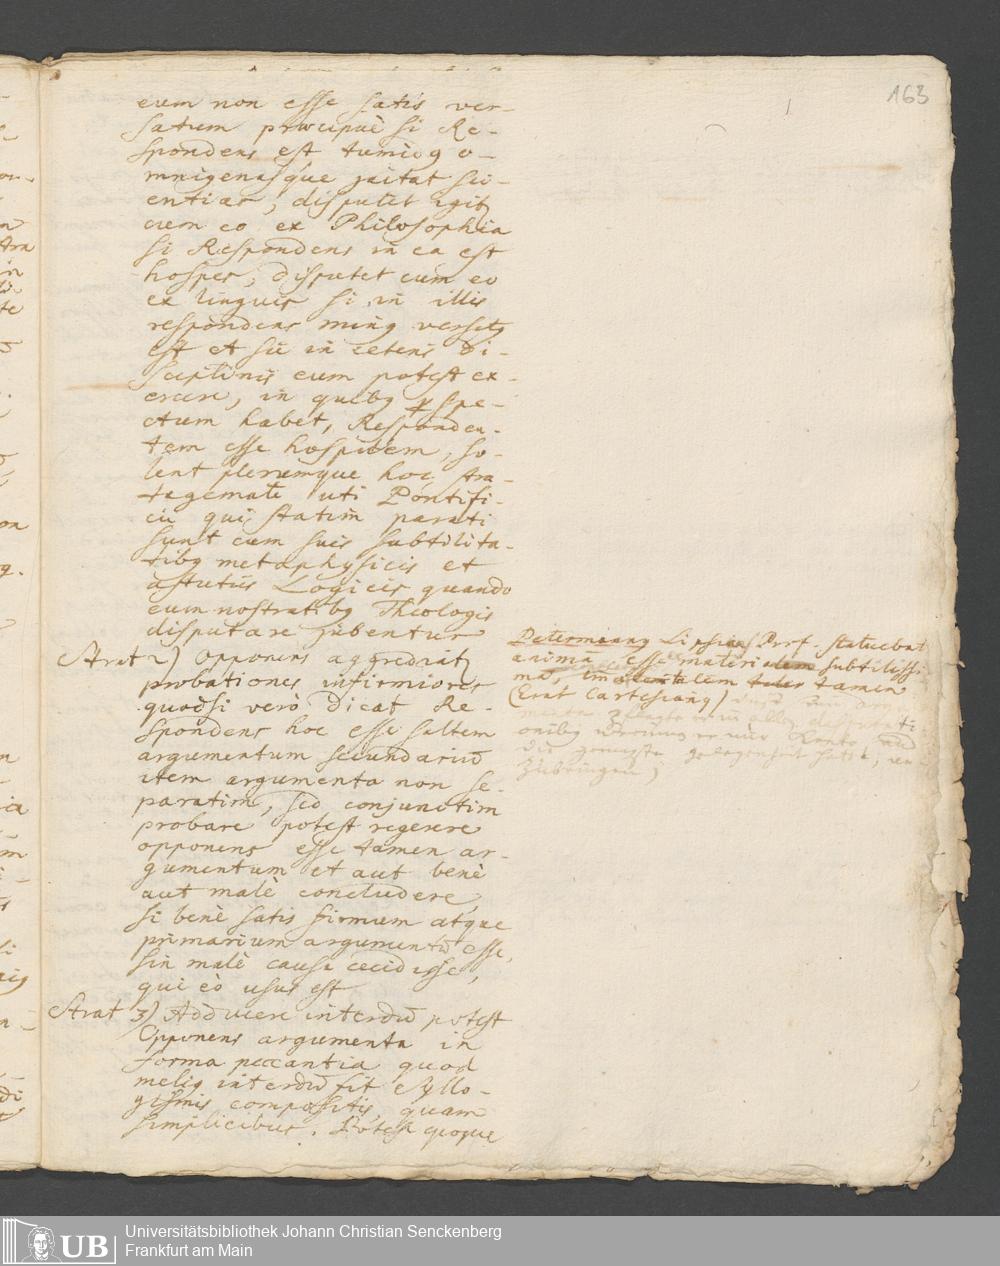 163
eum non esse satis ver-
satum præcipuè si Re-
spondens est tumidq o-
mnigenasque jactat sci-
entias, disputet igit
cum eo ex Philosophia
si Respondens in ea est
hospes, disputet cum eo
ex linguis si in illis
respondens minq versatq
est et sic in ceteris di-
sciplinis eum potest ex-
ercere, in quibq
ctum habet, Responden-
tem esse hospitem, so-
lent plerumque hoc stra-
tagemate uti Pontifi-
cii qui statim parati
sunt cum suis subtilita-
tibq metaphysicis et
astutiis Logicis quando
cum nostratibq Theologis
disputare jubentur
Strat 2) Opponens aggrediat
probationes infirmiores
quodsi verò dicat Re-
spondens hoc esse saltem
argumentum secundariū
item argumenta non se-
paratim, sed conjunctim
probare potest regerere
opponens esse tamen ar-
gumentum et aut benè
aut malè concludere,
si benè satis firmum atque
primarium argumentū esse,
sin malè causa cecidisse,
qui eò usus est
Strat 3) Adducere interdū potest
Opponens argumenta in
forma peccantia quod
meliq interdū fit Syllo-
gismis compositis, quam
simplicibus. Potest quoque
Lipsiens Prof. statuebat
animā esse materialem subtilissi-
mā, tamen
(Erat Cartesianq)
in allen disputati-
onibq er nur
die gelegenheit hatte, an-
zubringen,
Universitätsbibliothek Johann Christian Senckenberg
Frankfurt am Main
UB